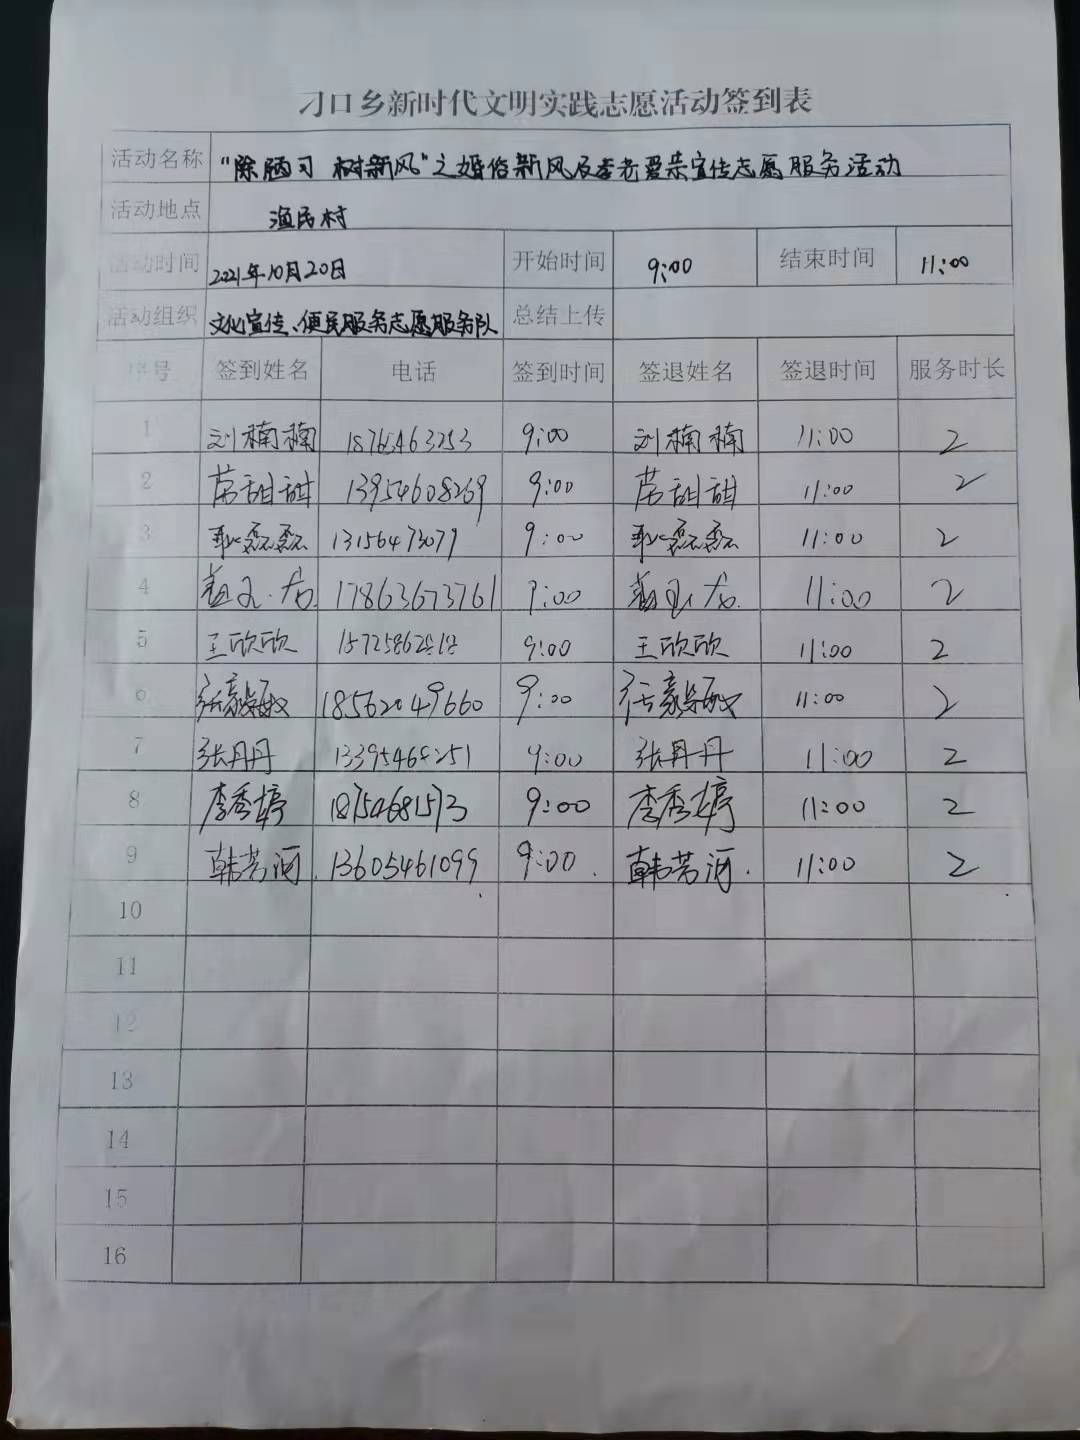 刁口乡新时代文明实践志愿活动签到表
活动名称 "除陋习 树新风"之婚俗新风及孝老爱亲宣传志愿服务活动
活动地点 渔民村
活动时间 2021年10月20日 开始时间 9:00 结束时间 11:00
活动组织 文化宣传、便民服务志愿服务队 总结上传
序号 签到姓名 电话 签到时间 签退姓名 签退时间 服务时长
1 刘楠楠 9:00 刘楠楠 11:00 2
2 甜甜 13954608269 9:00 甜甜 11:00 2
3 磊磊 13156473079 9:00 磊磊 11:00 2
4 17863673761 9:00 11:00 2
5 王欣欣 9:00 王欣欣 11:00 2
6 18562049660 9:00 11:00 2
7 张丹丹 9:00 张丹丹 11:00 2
8 李秀婷 18754681573 9:00 李秀婷 11:00 2
9 韩芳 13605461099 9:00 韩芳 11:00 2
10
11
12
13
14
15
16